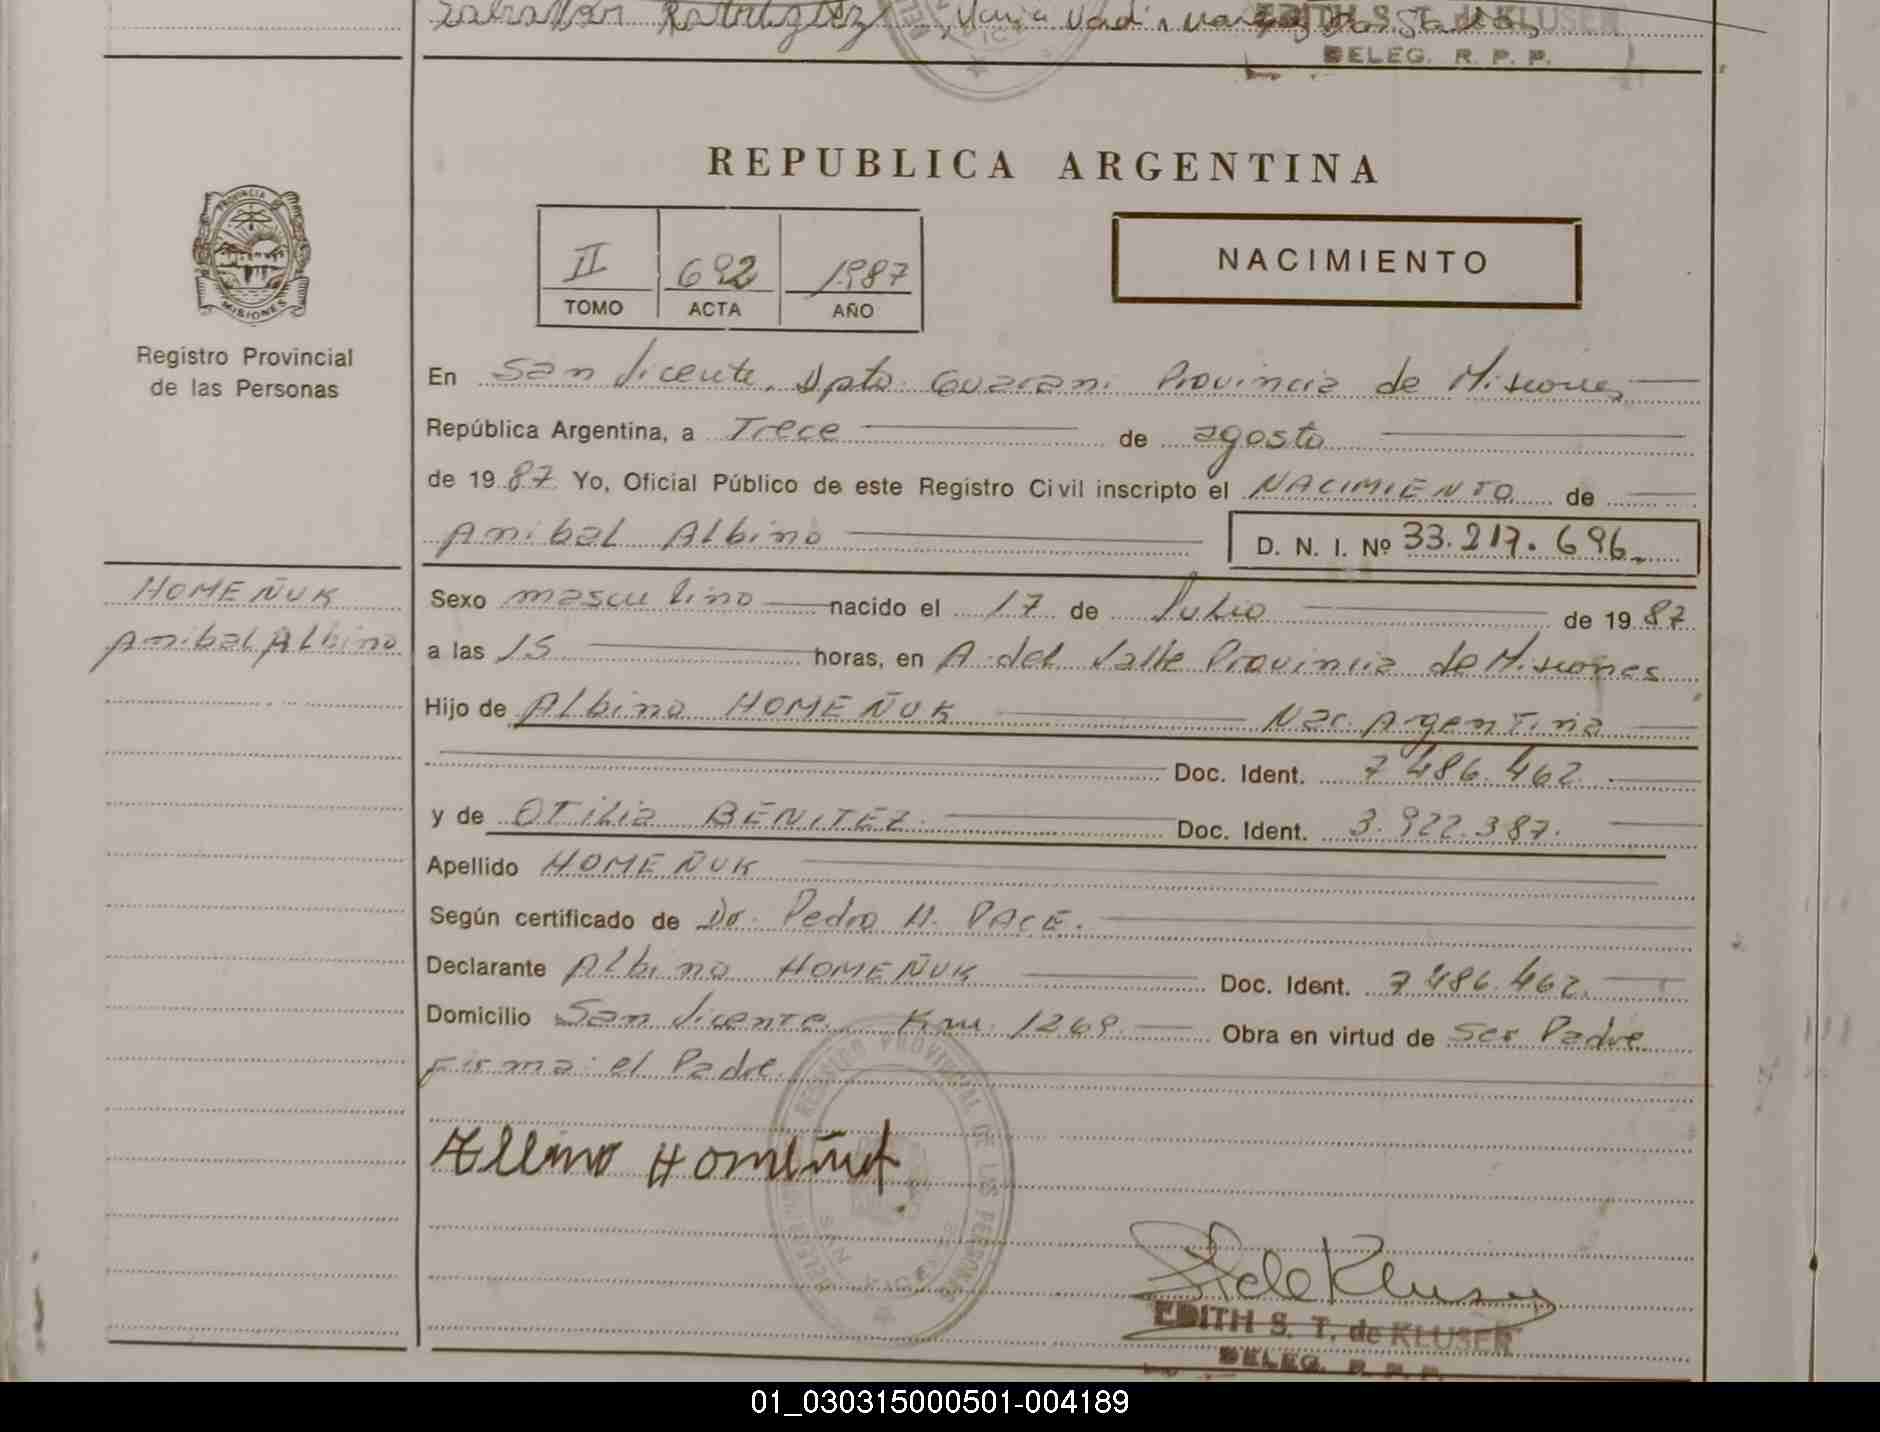 Maria
EDITH S. T. de KLUSER
DELEG. R. P. P.
REPUBLICA ARGENTINA
PROVINCIA DE
MISIONES
Registro Provincial
de las Personas
II 692 1987
TOMO ACTA AÑO
NACIMIENTO
En San Vicente, Dpto. Guarani Provincia de Misiones
República Argentina, a Trece de agosto
de 1987 Yo, Oficial Público de este Registro Civil inscripto el NACIMIENTO de
Anibal Albino D. N. I. Nº 33.217.696.
HOMEÑUK
Anibal Albino
Sexo masculino nacido el 17 de Julio de 1987
a las 15 horas, en A. del Valle Provincia de Misiones
Hijo de Albino HOMEÑUK Nac. Argentina
Doc. Ident. 7.486.462
y de OTilia BENITEZ. Doc. Ident. 3.922.387.
Apellido HOMEÑUK
Según certificado de Dr. Pedro H. PACE.
Declarante Albino HOMEÑUK Doc. Ident. 7.486.462.
Domicilio San Vicente Km. 1269 Obra en virtud de Ser Padre
Firma: el Padre
Albino Homeñuk
REGISTRO PROVINCIAL DE LAS PERSONAS
SAN VICENTE
S. T. de Kluser
EDITH S. T. de KLUSER
DELEG. R. P. P.
01_030315000501-004189